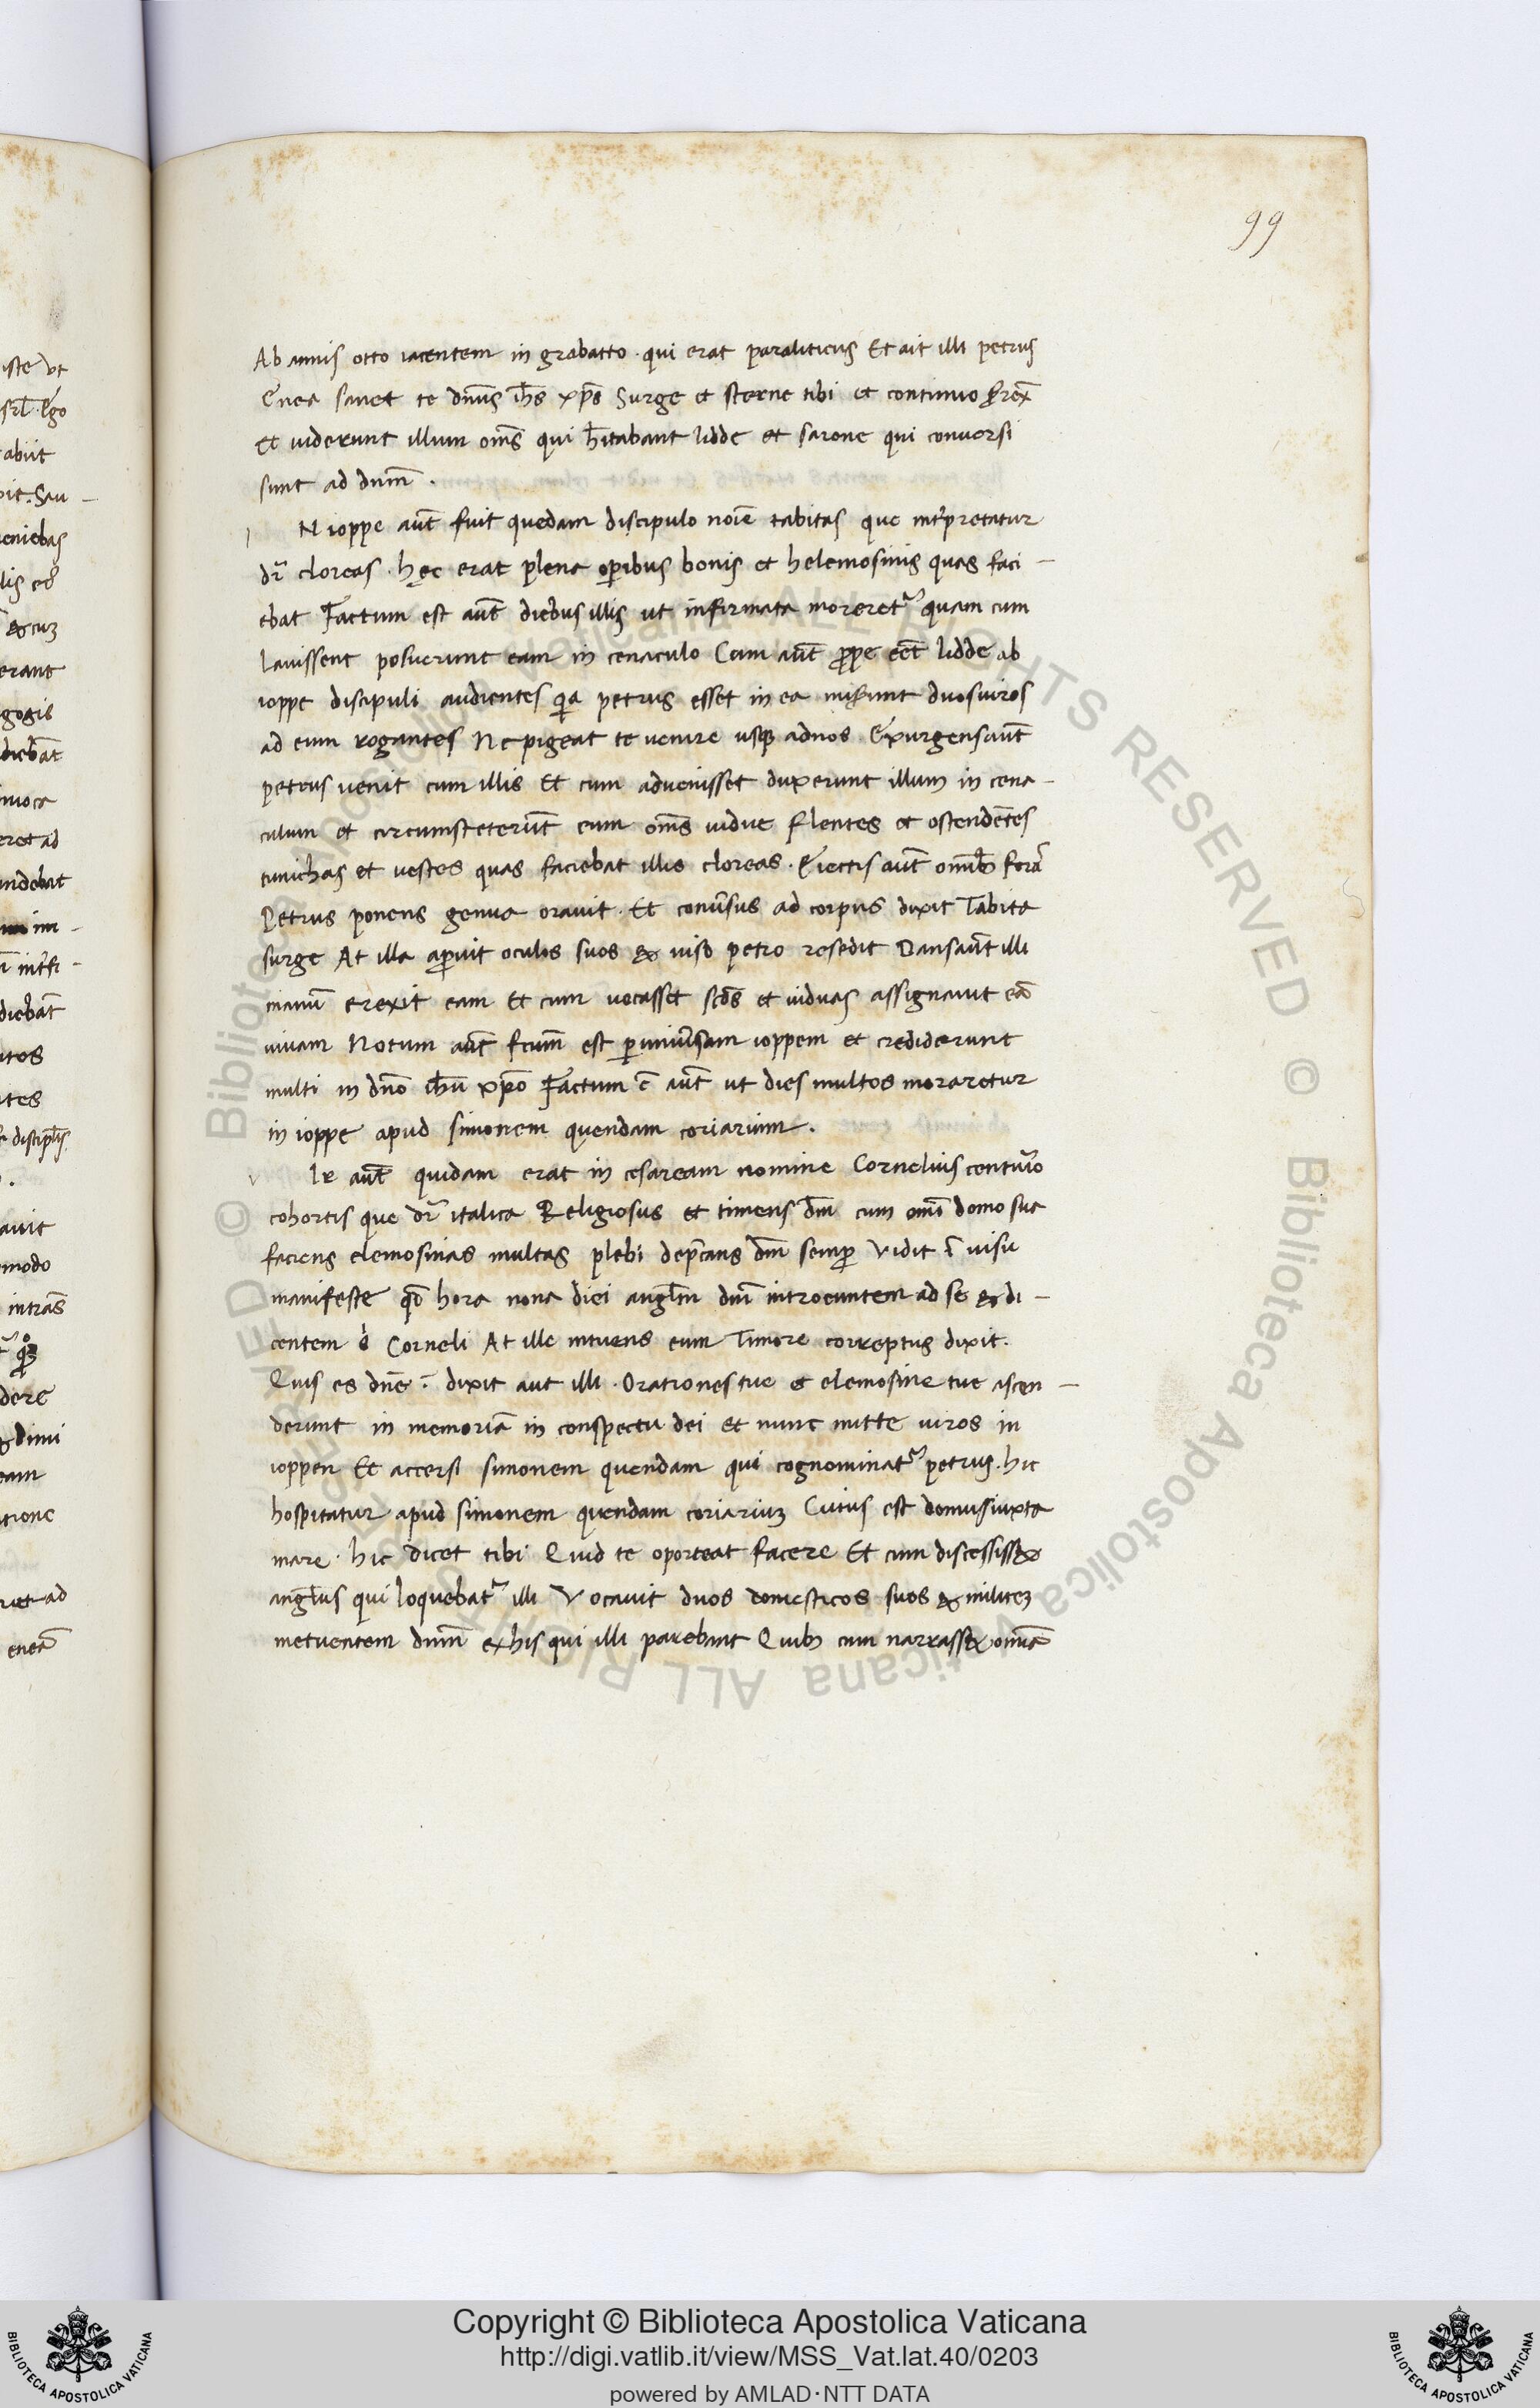 99
Ab annis otto iacentem in grabatto · qui erat paraliticus Et ait illi petrus
Enea sanet te dn̄us ih̄s xp̄s Surge et sterne tibi et continuo
et uiderunt illum om̄s qui h̄itabant lidde et sarone qui conuersi
sunt ad dnm̄ .
N ioppe aut̄ fuit quedam discipulo noīe tabitas que int̄pretatur
dr̄ cloreas · hęc erat plena op̄ibus bonis et helemosinis quas faci –
ebat Factum est aut̄ diebus illis ut infirmata moreret᷑ quam cum
lauissent posuerunt eam in cenaculo Cum aut̄ ꝓpe eet̄ lidde ab
ioppe discipuli audientes qia petrus esset in ea duos uiros
ad eum rogantes Ne pigeat te uenire usqꝫ ad nos Exurgens aut̄
petrus uenit cum illis Et cum aduenisset duxerunt illum in cena –
culum et circumsteterūt eum om̄s uidue flentes et ostendētes
tunichas et uestes quas faciebat illis cloreas · Eiectis aut̄ omīb;
Petrus ponens genua orauit · Et conūsus ad corpus dixit Tabita
surge At illa aꝑuit oculos suos & uiso petro resedit Dans aut̄ illi
manū erexit eam Et cum uocasset sc̄os et uiduas assignauit eā
uiuam Notum aut̄ fcum̄ est ꝑ uniūsam ioppem et crediderunt
multi in dn̄o ih̄u xp̄o Factum ē aut̄ ut dies multos moraretur
in ioppe apud simonem quendam coriarium .
V Ir aut̄ quidam erat in cesaream nomine Cornelius centurio
cohortis que dr̄ italica Religiosus et timens dm̄ cum omī domo sua
faciens elemosinas multas plebi dep̄cans dm̄ semꝑ Vidit ī uisu
manifeste hora nona diei angl̄m dn̄i introeuntem ad se & di –
centem Corneli At ille intuens eum Timore correptus dixit .
Quis es dn̄e dixit aut illi · Orationes tue et elemosine tue ascen –
derunt in memoriā in conspectu dei et nunc mitte uiros in
ioppen Et accersi simonem quendam qui cognominat᷑ petrus · hic
hospitatur apud simonem quendam coriariuꝫ Cuius est domus iuxta
mare · hic dicet tibi Quid te oporteat facere Et cum discessiss&
angl̄us qui loquebat᷑ illi Vocauit duos domesticos suos & militeꝫ
metuentem dnm̄ ex his qui illi parebant Quibꝫ cum narrass& omīa
Copyright © Biblioteca Apostolica Vaticana
http://digi.vatlib.it/view/MSS_Vat.lat.40/0203
powered by AMLAD·NTT DATA